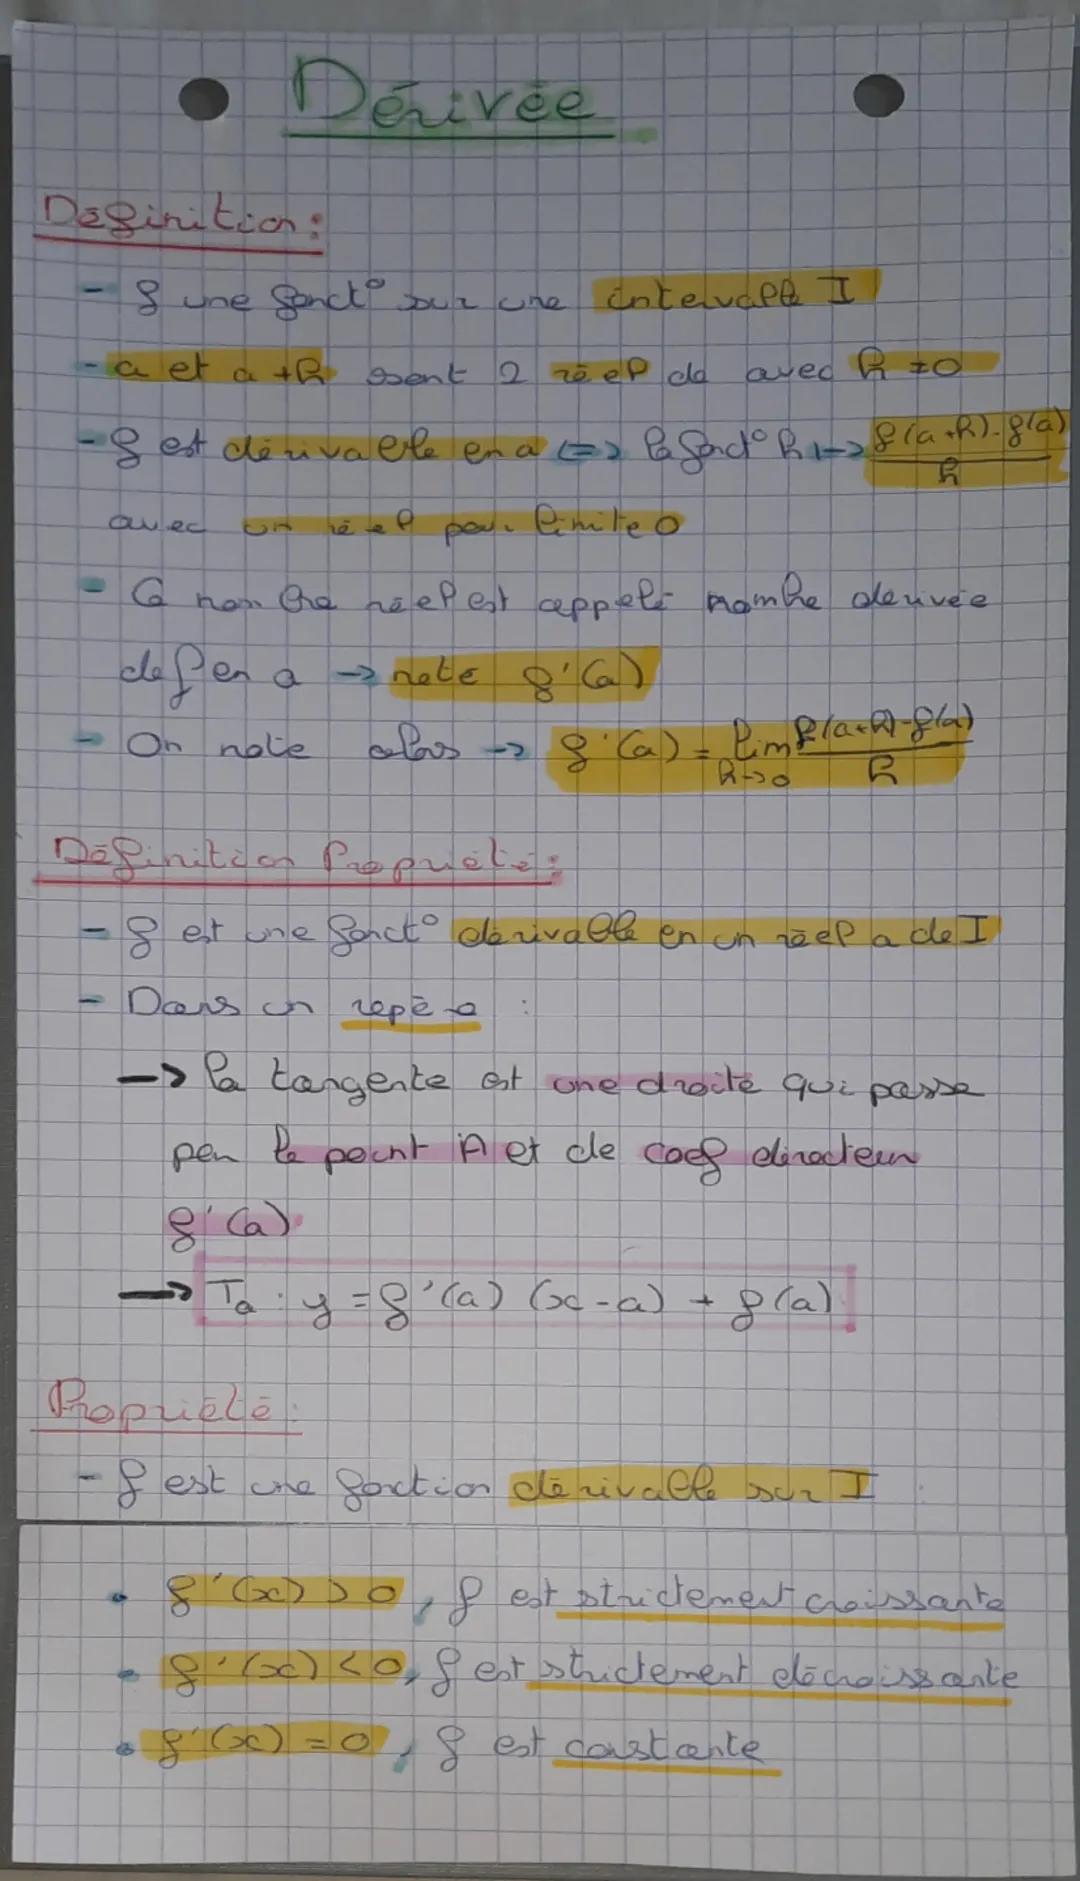 Dérivée
Définition :
- f une fonct° sur une intervalle I
- a et a+h sont 2 réel de avec h ≠ 0
- f est dérivable en a <=> la fonct° h ↦ f(a+h)-f(a) / h
avec un réel pour limite 0
- Ce nombre réel est appelé nombre dérivée
de f en a -> noté f'(a)
- On note alors -> f'(a) = lim h->0 f(a+h)-f(a) / h
Définition Propriété :
- f est une fonct° dérivable en un réel a de I
- Dans un repère :
-> la tangente est une droite qui passe
par le point A et de coef directeur
f'(a)
-> Ta : y = f'(a) (x-a) + f(a)
Propriété :
- f est une fonction dérivable sur I :
• f'(x) > 0, f est strictement croissante
• f'(x) < 0, f est strictement décroissante
• f'(x) = 0, f est constante